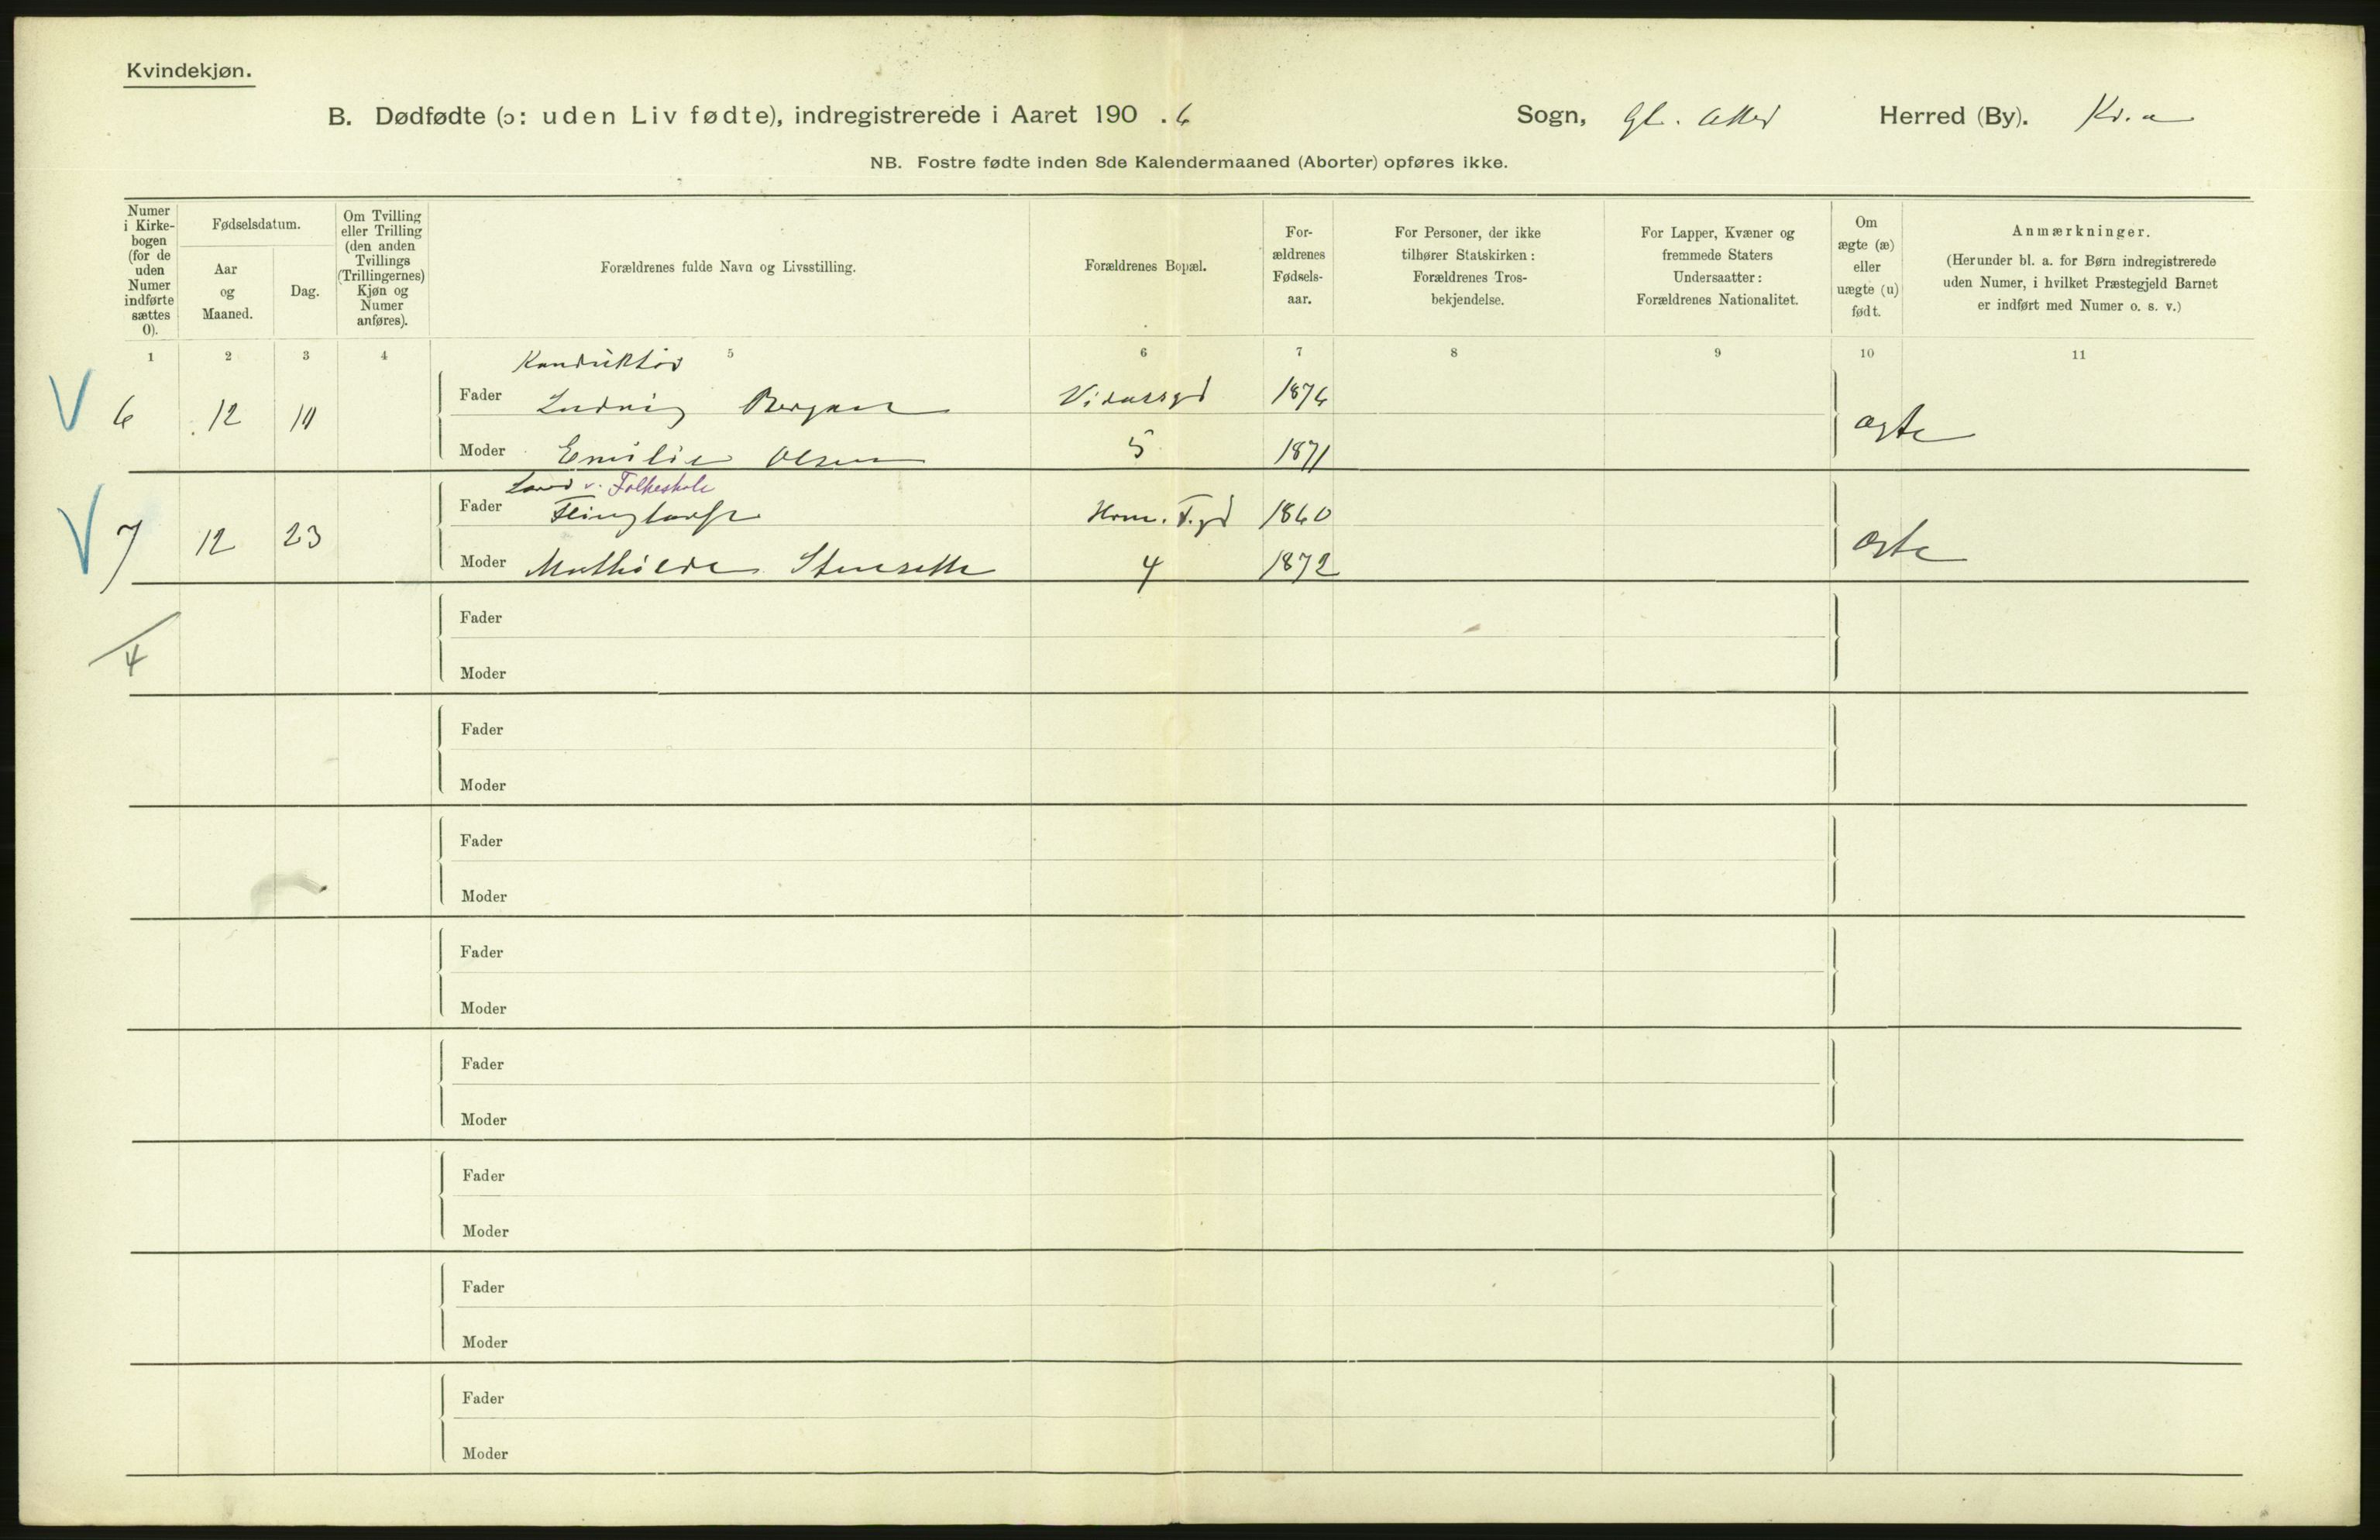 Kvindekjøn.
B. Dødfødte (ɔ: uden Liv fødte), indregistrerede i Aaret 190.6 Sogn, Gl. Aker Herred (By). Kr.a
NB. Fostre fødte inden 8de Kalendermaaned (Aborter) opføres ikke.
Numer
i Kirke-
bogen
(for de
uden
Numer
indførte
sættes
0).
Fødselsdatum.
Aar
og
Maaned.
Dag.
Om Tvilling
eller Trilling
(den anden
Tvillings
(Trillingernes)
Kjøn og
Numer
anføres).
Forældrenes fulde Navn og Livsstilling.
Forældrenes Bopæl.
For-
ældrenes
Fødsels-
aar.
For Personer, der ikke
tilhører Statskirken:
Forældrenes Tros-
bekjendelse.
For Lapper, Kvæner og
fremmede Staters
Undersaatter:
Forældrenes Nationalitet.
Om
ægte (æ)
eller
uægte (u)
født.
Anmærkninger.
(Herunder bl. a. for Børn indregistrerede
uden Numer, i hvilket Præstegjeld Barnet
er indført med Numer o. s. v.)
1 2 3 4 5 6 7 8 9 10 11
Konduktør
V 6 12 10 Fader Ludvig Bergan Vidarsgd 1876 ægte
Moder Emilie Olsen 5 1871
v. Folkeskole
V 7 12 23 Fader Hom. T.gd 1860 ægte
Moder Mathilde Stenseth 4 1872
4
Fader
Moder
Fader
Moder
Fader
Moder
Fader
Moder
Fader
Moder
Fader
Moder
Fader
Moder
Fader
Moder